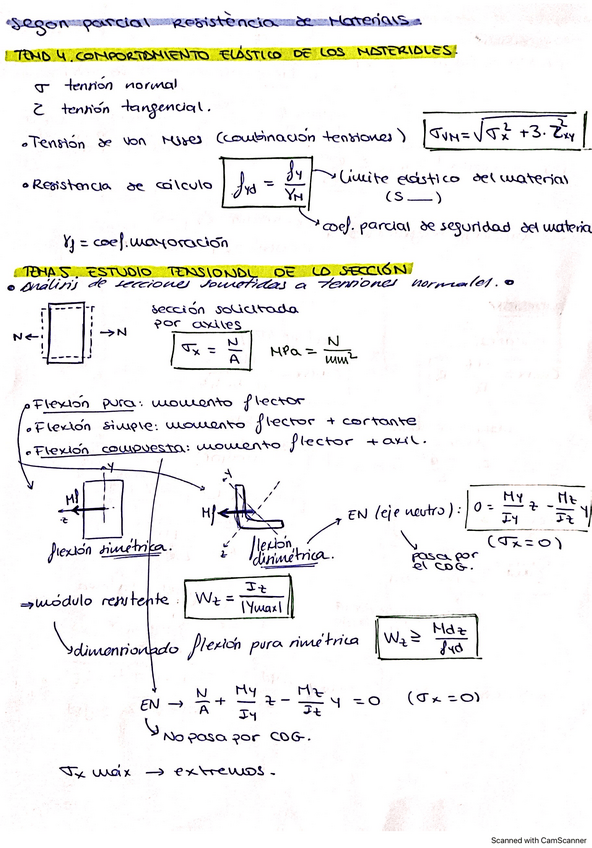 Segon parcial Resistència de Materials.
TEMA 4. COMPORTAMIENTO ELÁSTICO DE LOS MATERIALES.
σ tensión normal
τ tensión tangencial.
• Tensión de Von Mises (combinación tensiones) σVM = √σx² + 3·τ²xy
• Resistencia de cálculo fyd = fy/γM → Límite elástico del material
(S __)
→ coef. parcial de seguridad del materia
γf = coef. mayoración
TEMA 5. ESTUDIO TENSIONAL DE LA SECCIÓN
• Análisis de secciones sometidas a tensiones normales. •
N ← → N sección solicitada
por axiles
σx = N/A MPa = N/mm²
• Flexión pura: momento flector
• Flexión simple: momento flector + cortante
• Flexión compuesta: momento flector + axil.
y Mf z
flexión simétrica.
y Mf z
flexión disimétrica.
EN (eje neutro): 0 = My/Iy z - Mz/Iz y
(σx = 0)
pasa por
el CDG.
→ módulo resistente Wz = Iz/|ymax|
dimensionado flexión pura simétrica Wz ≥ Mdz/fyd
EN → N/A + My/Iy z - Mz/Iz y = 0 (σx = 0)
No pasa por CDG.
σx máx → extremos.
Scanned with CamScanner